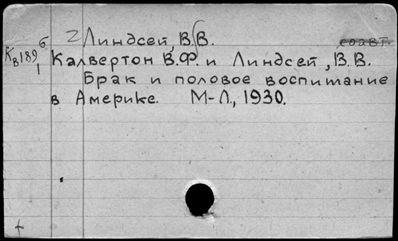 2 Линдсей, В.В. соавт.
Кв189 б/1 Калвертон В.Ф. и Линдсей, В.В.
Брак и половое воспитание
в Америке. М-Л., 1930.